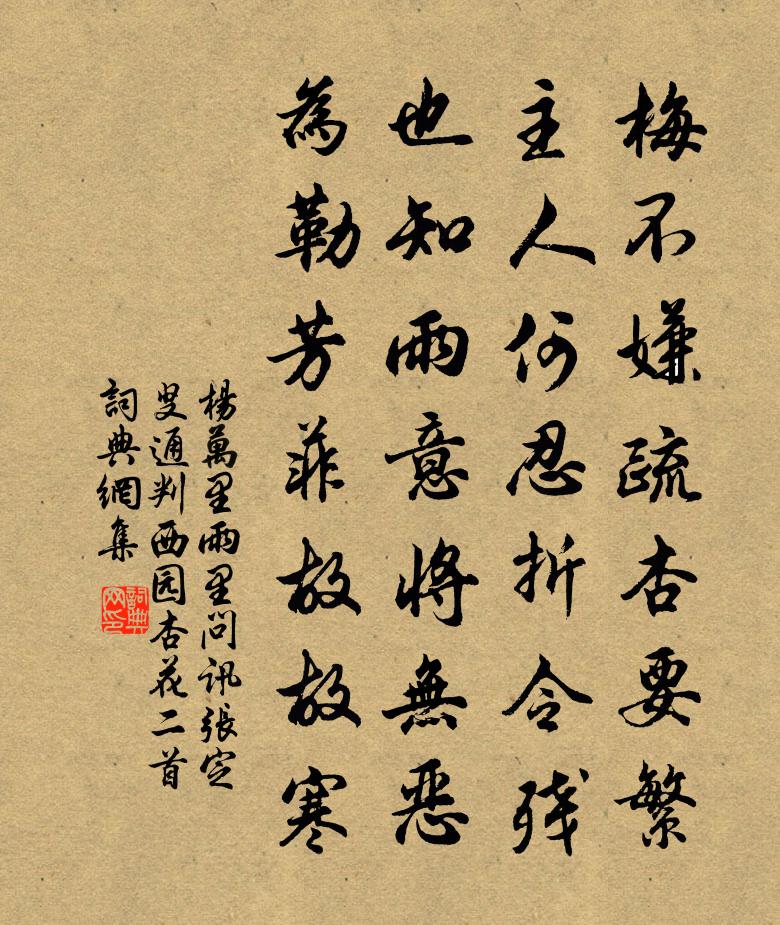 梅不嫌疏杏要繁
主人何忍折令残
也知雨意將無惡
為勒芳菲故故寒
楊萬里雨里问訊張定
叟通判西园杏花二首
詞典網集
詞典
网印